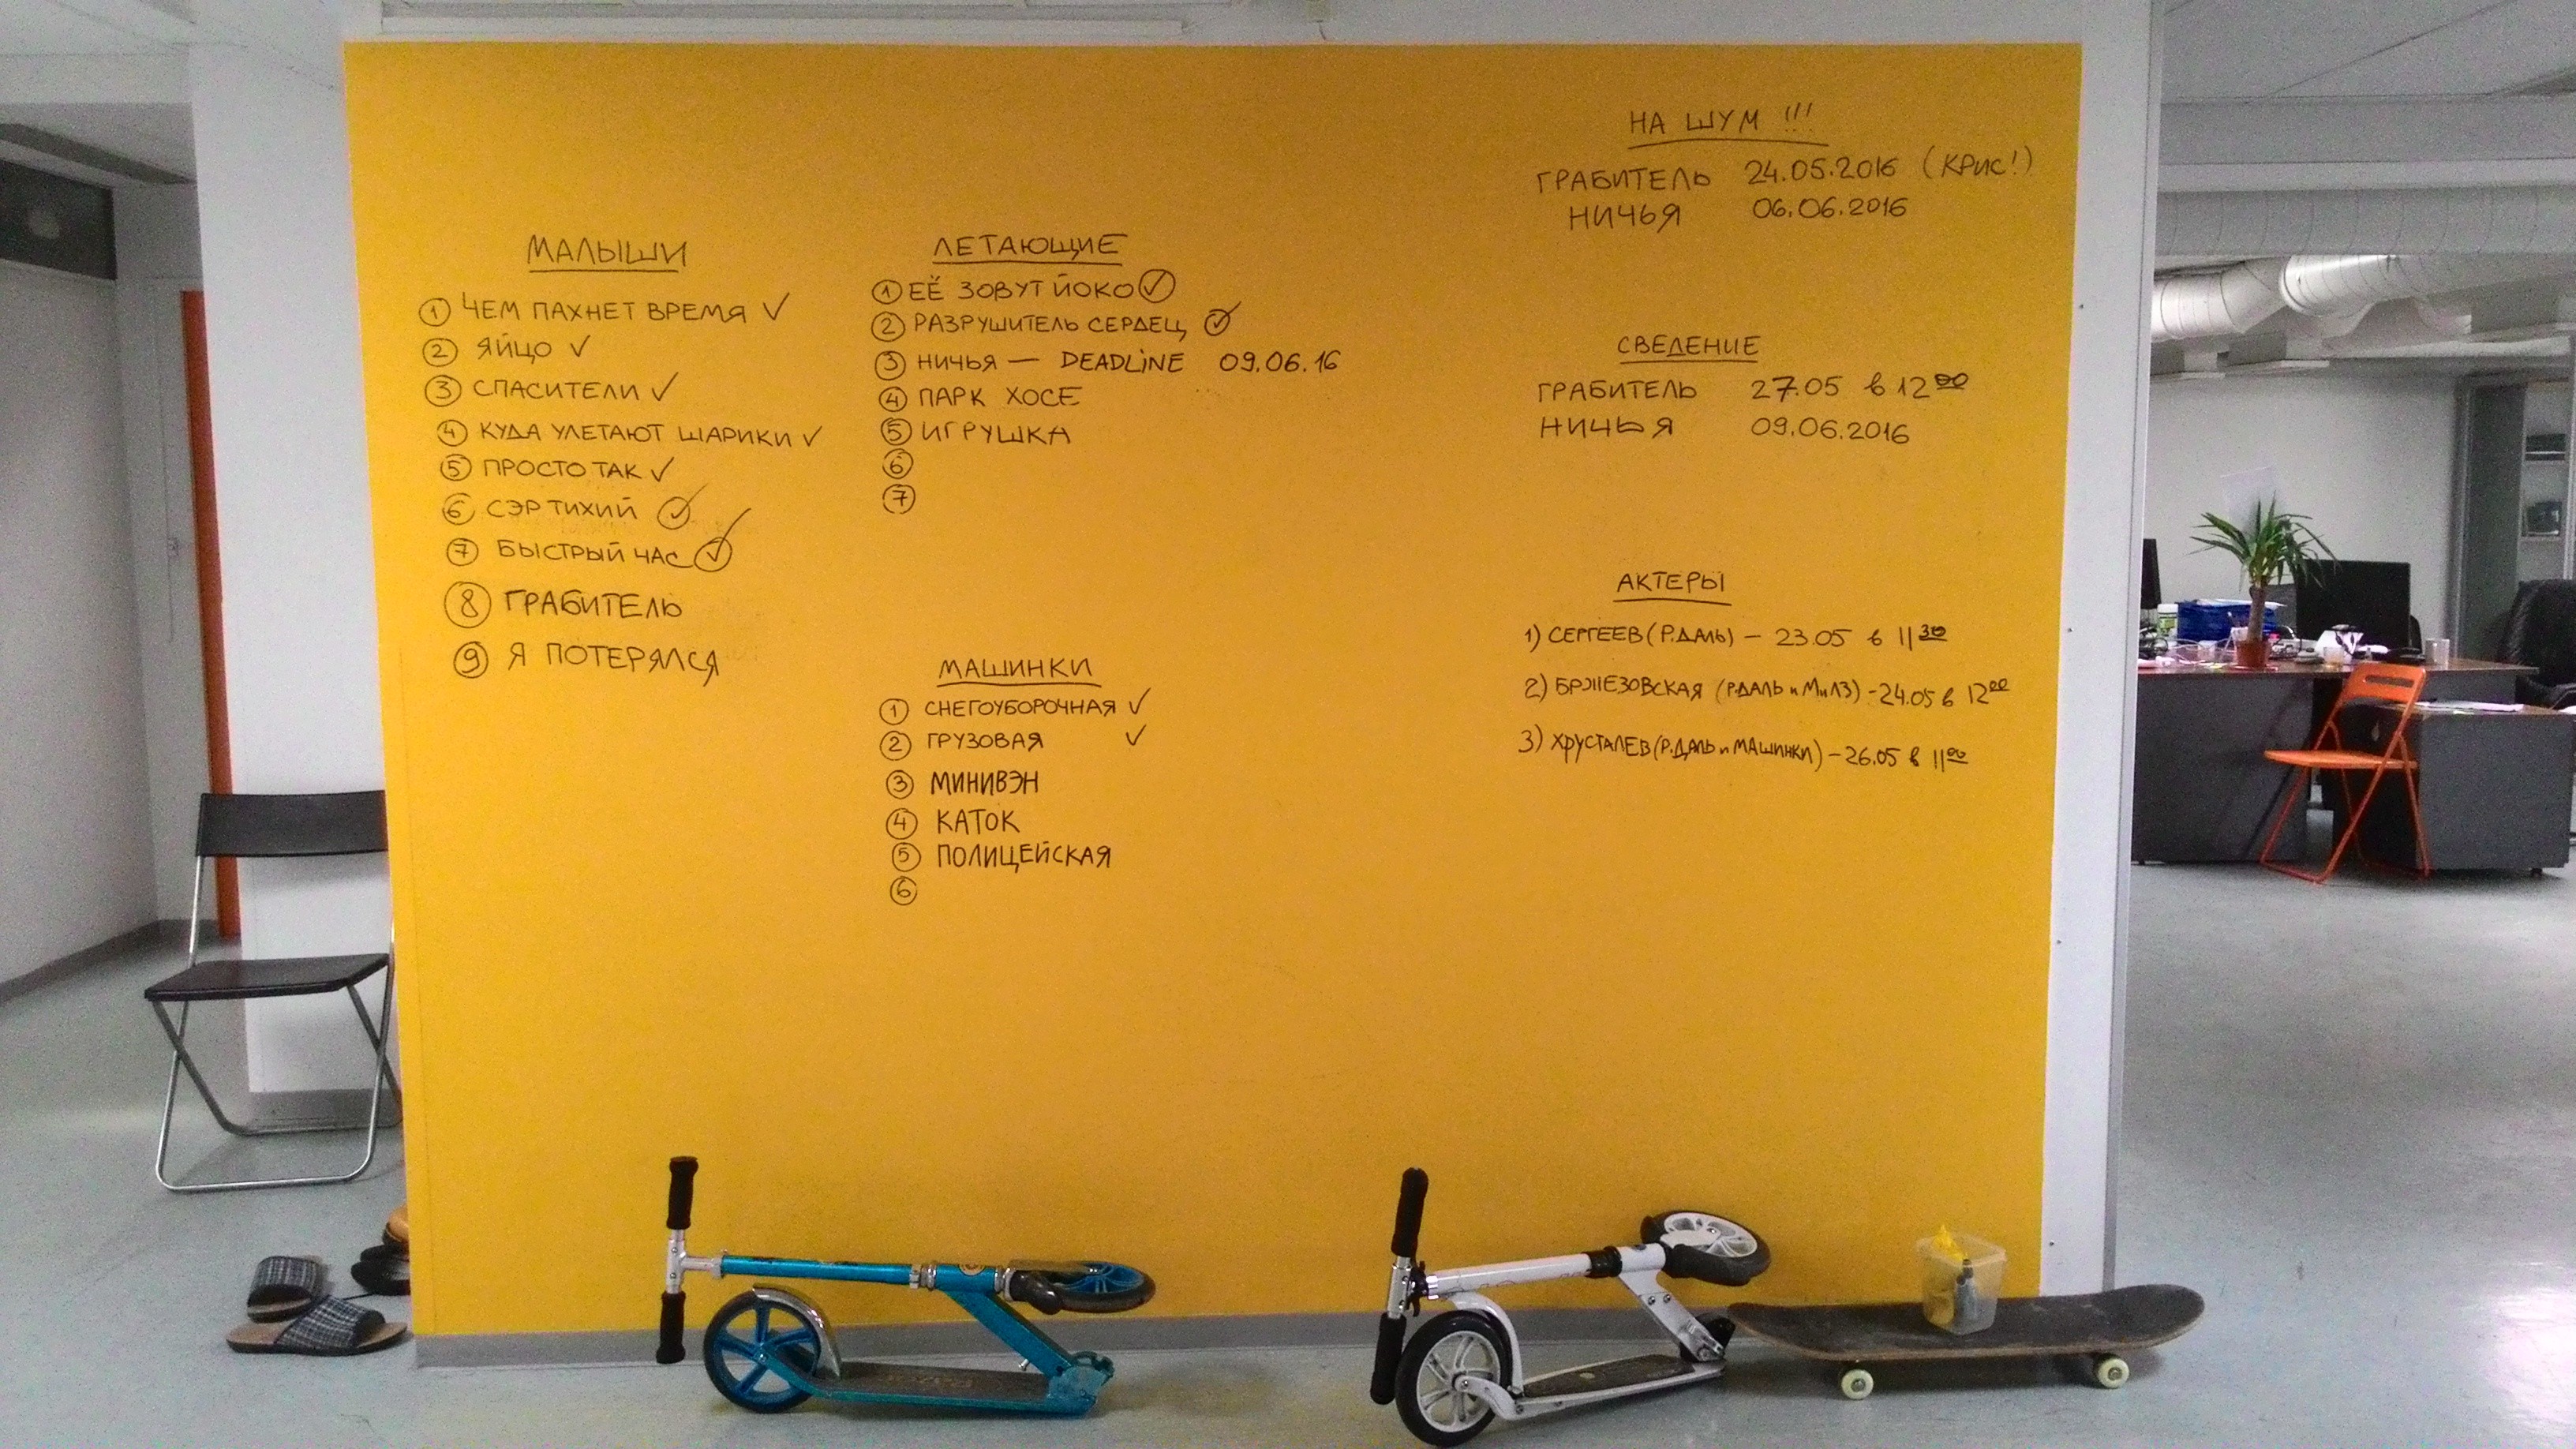 МАЛЫШИ
① ЧЕМ ПАХНЕТ ВРЕМЯ ✓
② ЯЙЦО ✓
③ СПАСИТЕЛИ ✓
④ КУДА УЛЕТАЮТ ШАРИКИ ✓
⑤ ПРОСТО ТАК ✓
⑥ СЭР ТИХИЙ ✓
⑦ БЫСТРЫЙ ЧАС ✓
⑧ ГРАБИТЕЛЬ
⑨ Я ПОТЕРЯЛСЯ
ЛЕТАЮЩИЕ
① ЕЁ ЗОВУТ ЙОКО ✓
② РАЗРУШИТЕЛЬ СЕРДЕЦ ✓
③ НИЧЬЯ — DEADLINE 09.06.16
④ ПАРК ХОСЕ
⑤ ИГРУШКА
⑥
⑦
МАШИНКИ
① СНЕГОУБОРОЧНАЯ ✓
② ГРУЗОВАЯ ✓
③ МИНИВЭН
④ КАТОК
⑤ ПОЛИЦЕЙСКАЯ
⑥
НА ШУМ !!!
ГРАБИТЕЛЬ 24.05.2016 (КРИС!)
НИЧЬЯ 06.06.2016
СВЕДЕНИЕ
ГРАБИТЕЛЬ 27.05 в 12 00
НИЧЬЯ 09.06.2016
АКТЕРЫ
1) СЕРГЕЕВ (Р.ДАЛЬ) – 23.05 в 11 30
2) БРЖЕЗОВСКАЯ (Р.ДАЛЬ и МиЛЗ) – 24.05 в 12 00
3) ХРУСТАЛЕВ (Р.ДАЛЬ и МАШИНКИ) – 26.05 в 11 00